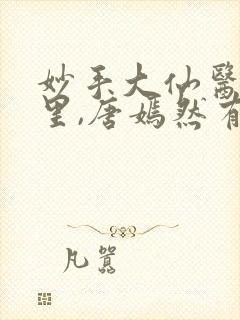 妙手大仙醫
里,唐嫣然有
凡囂